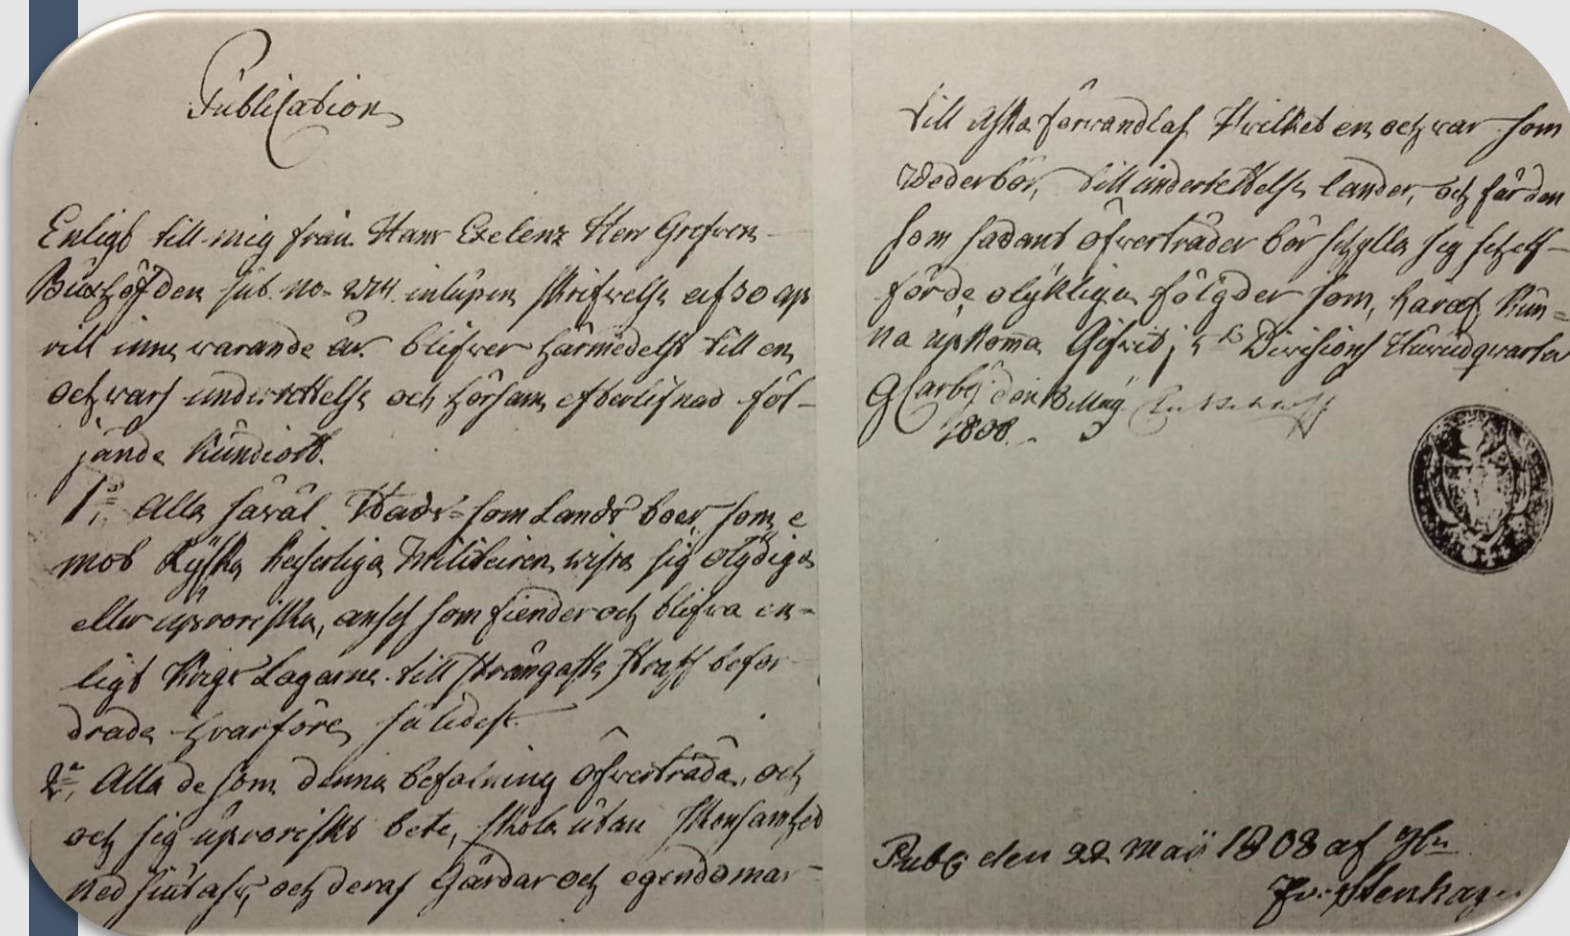 Publication
Enligt till mig från Hans Exelenz Herr Grefven
Buxhöfden sub. No= inlupen skrifwelse af 30 ap
rill inne warande år blifwer härmedelst till en
och wars underrettelse och hörsam efterlefnad föl-
jande kundiort.
1:o Alla såväl Stads= som Lands boer, som e
mot Ryska Keiserliga Militeiren wisa sig olydiga
eller uproriska, anses som fiender och blifwa en-
ligt Krigs Lagarne till strängaste straff befor
drade hvarföre således.
2:o Alla de som denna befalning öfwerträda, och
och sig uproriskt bete, skola utan skonsamhed
ned siutas, och deras Gårdar och egendomar
till Aska förwandlas Hwilket en och war som
wederbör, till underrettelse lander, och får den
som sådant öfwerträder bör skylla sig sjelf-
förde olykliga fölgder som, haraf kun=
na upkomma Gifwit i 5te Divisions Huvudqwarter
GCarby den Maij
1808.
Pub: den 22 Maii 1808 af
Stenhagen